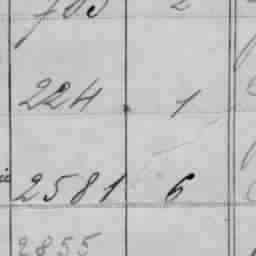 703 2
224 1
2581 6
2855